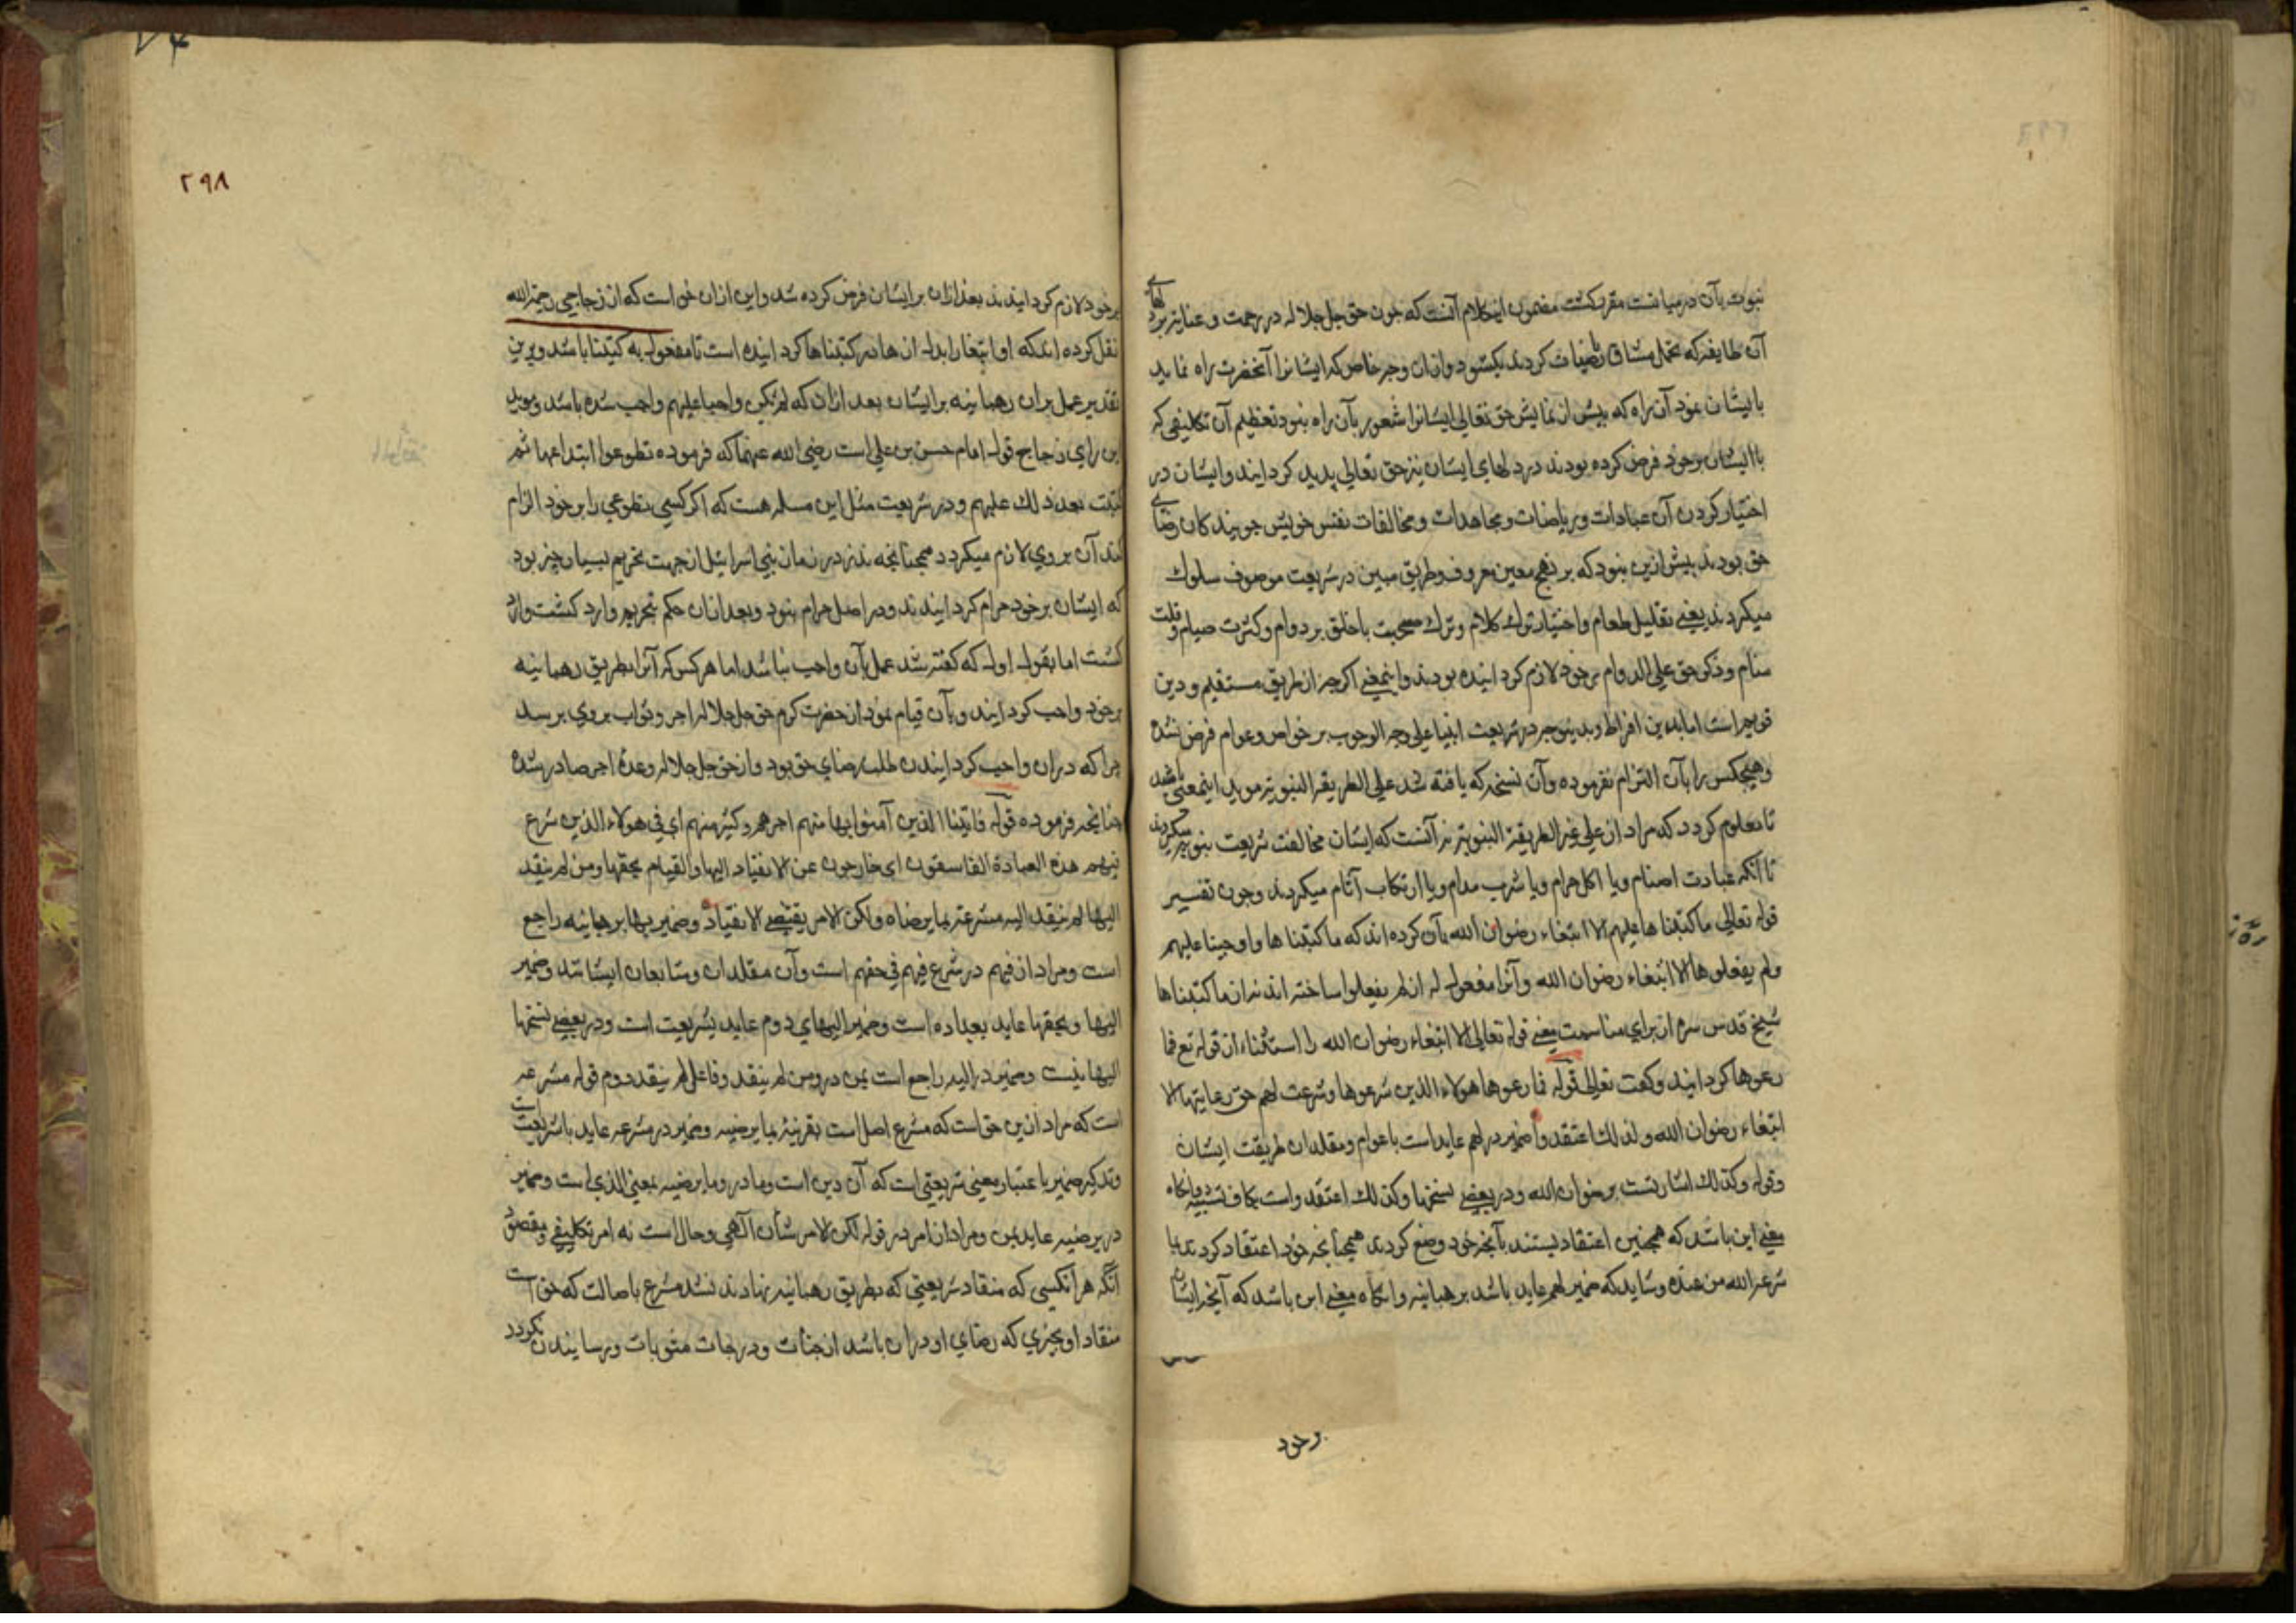 نبوت بآن درمیانست مقرر کشت مضمون اینکلام آنست که جون حق جل جلاله در رحمت و عنایة بر دلهای
آن طایفه که تحمل مشاق ریاضیات کردند بکشود وازان وجه خاص که ایشانرا آنحضرت راه نماید
بایشان نمود آن راه که بیش از نمایش حق تعالی ایشانرا شعور بآن راه نبود تعظیم آن تکالیفی که
باایشان برخود فرض کرده بودند در دلهای ایشان نیز حق تعالی پدید کردایند وایشان در
اختیار کردن آن عبادات وریاضات ومجاهدات ومخالفات نفس خویش جویندکان رضای
حق بودند بیش ازین نبود که بر نهج معین معروف وطریق مبین در شریعت موصوف سلوک
میکردند یعنی تقلیل طعام واختیار ترک کلام وترک صحبت باخلق بر دوام وکثرت صیام وقلت
منام وذکر حق علی الدوام برخود لازم کردانیده بودند واینمعنی اکرچه از طریق مستقیم ودین
قویم است امابدین افراط وبدینوجه در شریعت انبیا علی وجه الوجوب بر خواص وعوام فرض نشده
وهیجکس را بآن التزام نفرموده وآن نسخه که یافته شد علی الطریقة النبویة موید اینمعنی باشد
تا معلوم کردد که مراد از علی غیر الطریقة النبویة نه آنست که ایشان مخالفت شریعت نبویه میکردند
تا آنکه عبادت اصنام ویا اکل حرام ویا شرب مدام ویا ارتکاب آثام میکردند وجون تفسیر
قوله تعالی ماکتبنا هاعلیهم الا ابتغاء رضوان الله بآن کرده اند که ماکتبنا ها واوجبنا علیهم
ولم یفعلوها الا ابتغاء رضوان الله وآنرا مفعول له از لم یفعلوا ساخته اند نه از ماکتبناها
شیخ قدس سره از برای مناسبت معنی قوله تعالی الا ابتغاء رضوان الله را استثناء از قوله تع فما
رعوها کردانید وکفت تعالی قوله فما رعوها هولاء الذین شرعوها وشرعت لهم حق رعایتها الا
ابتغاء رضوان الله ولذلک اعتقدوا ضمیر در لهم عایداست باعوام ومقلدان طریقت ایشان
وقوله وکذلک اشارتست برضوان الله ودر بعضی نسخها وکذلک اعتقدواست بکاف تشبیه وانکاه
معنی این باشد که همجنین اعتقاد بستند بآنجه خود وضع کردند همجنانجه خود اعتقاد کردند بما
شرعه الله من عنده وشاید که ضمیر لهم عاید باشد برهبانیه وانکاه معنی این باشد که آنجه ایشان
برخود
٢٩٨
برخود لازم کردایندند بعد ازان بر ایشان فرض کرده شد واین ازان خواست که از زجاجی رحمة الله
نقل کرده اندکه او ابتغا را بدل از ها در کتبناها کردانیده است تا مفعول به کتبنا باشد وبرین
تقدیر عمل بران رهبانیه بر ایشان بعد ازان که لم یکن واجبا علیهم واجب شده باشد وموید
این رای زجاج قول امام حسن بن علی است رضی الله عنهما که فرموده تطوعوا ابتداعها ثم
کتبت بعد ذلک علیهم ودر شریعت مثل این مسله هست که اکر کسی تطوعی را بر خود الزام
کند آن بروی لازم میکردد همجنانجه نذر در زمان بنی اسرائیل از جهت تحریم بسیار چیز بود
که ایشان بر خود حرام کردایندند ودر اصل حرام نبود وبعد ازان حکم تحریم وارد کشت وارد
کشت اما بقول اول که کفته شد عمل بآن واجب نباشد اما هرکس که آنرا بطریق رهبانیه
برخود واجب کردایند وبآن قیام نمود از حضرت کرم حق جل جلاله اجر وثواب بروی برسد
چرا که دران واجب کردایندن طلب رضای حق بود واز حق جل جلاله وعدهٔ اجر صادر شده
جنانجه فرموده قوله فاتینا الذین آمنوا بها منهم اجرهم وکثیر منهم ای فی هولاء الذین شرع
فیهم هذه العبادة الفاسقون ای خارجون عن الانقیاد الیها والقیام بحقها ومن لم ینقد
الیها لم ینقد الیه مشرعه بما یرضاه ولکن الامر یقتضی الانقیاد وضمیر بها برهبانیه راجع
است ومراد از فیهم در شرع فیهم فی حقهم است وآن مقلدان ومتابعان ایشانند وضمیر
الیها وبحقها عاید بعباده است وضمیر الیهای دوم عاید بشریعت است ودر بعضی نسخها
الیها نیست وضمیر در الیه راجع است بمن در ومن لم ینقد وفاعل لم ینقد دوم قوله مشرعه
است که مراد ازین حق است که مشرع اصل است بقرینهٔ بما یرضیه وضمیر در مشرعه عاید باشریعت است
وتذکیر ضمیر با عتبار معنی شریعتی است که آن دین است وما در وما یرضیه بمعنی الذی است وضمیر
در یرضیه عاید بمن ومراد از امر در قوله لکن الامر شان آلهی وحال است نه امر تکلیفی ومقصود
آنکه هر آنکسی که منقاد شریعتی که بطریق رهبانیه نهادند نشد مشرع باصالت که حق است
منقاد او بچیزی که رضای او دران باشد از جنات ودرجات مثوبات ورسایندن نکردد